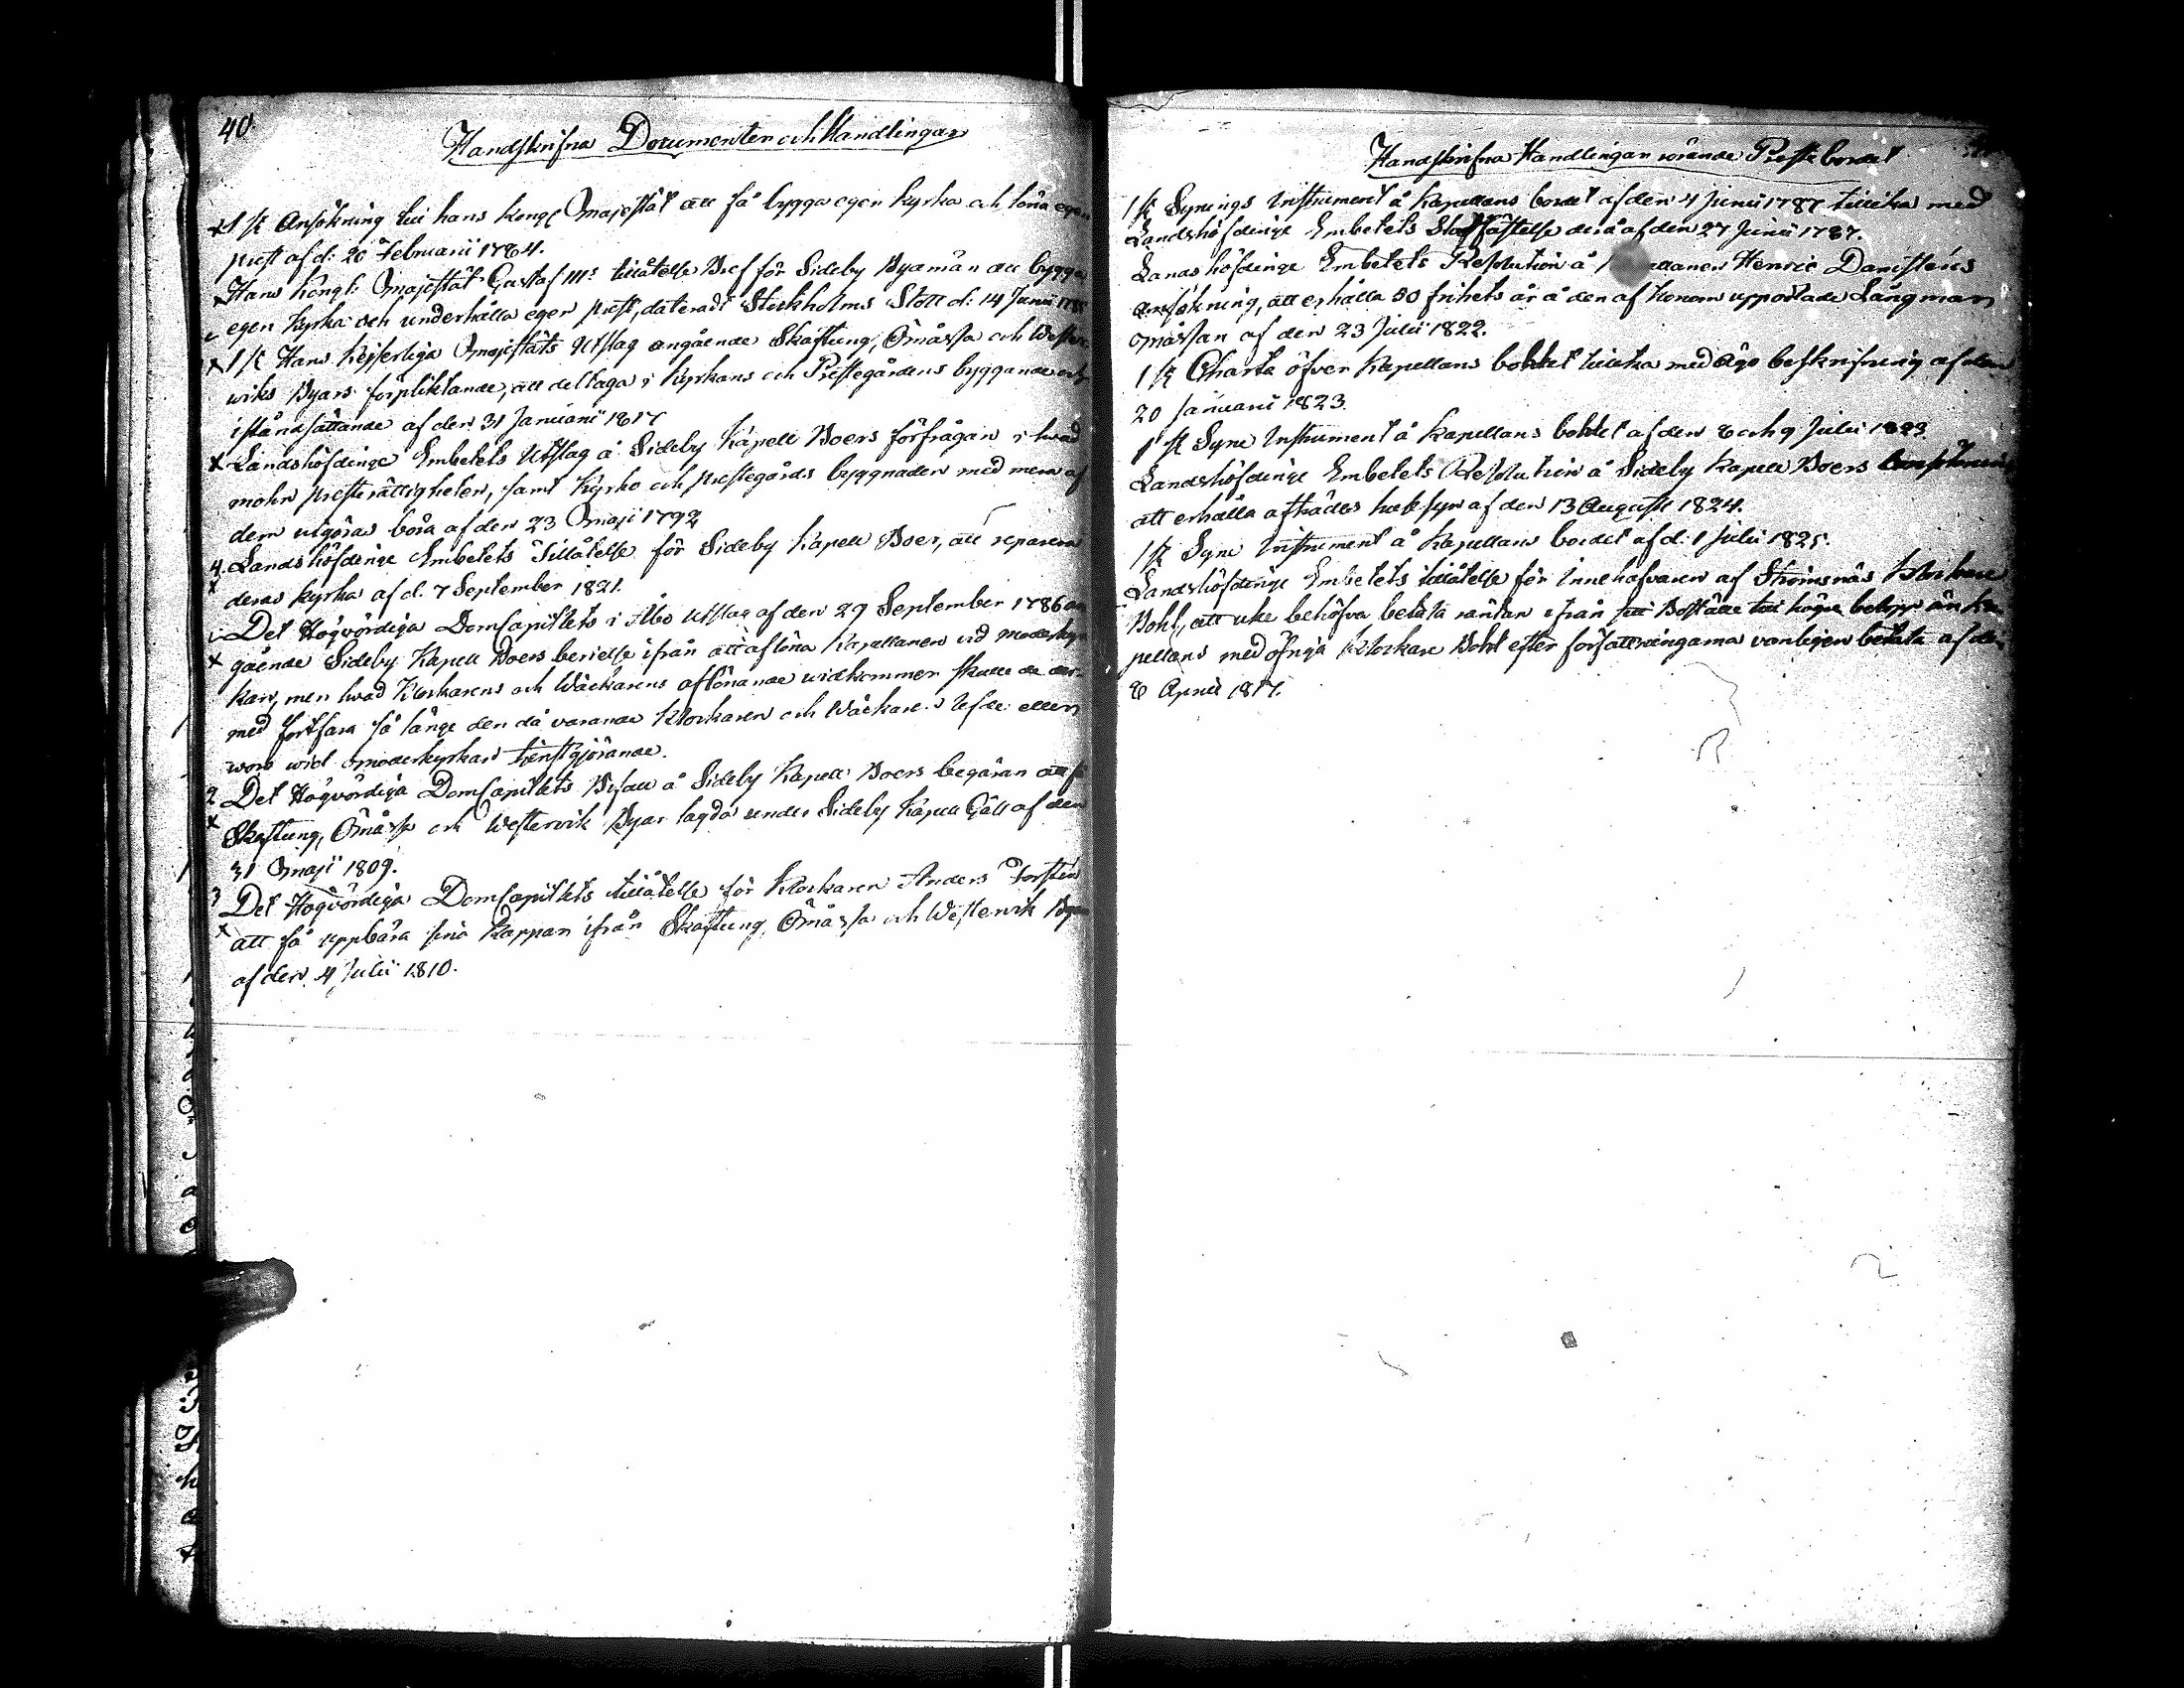 40.
Handskrifna Documenter och Handlingar
x 1 st Ansökning till hans Kongl Majestät att få bygga egen Kyrka och löna egen
prest af d: 20 Februarii 1764.
x Hans Kongl: Majestät Gustaf III:s tillåtelse Bref för Sideby Byamän att bygga
egen Kyrka och underhålla egen prest, dateradt Stockholms Slott d: 14 Junii
x 1 st Hans Kejserliga Majestäts Utslag angående Skaftung, Ömåssa och Wester-
wiks Byars förpliktande, att deltaga i Kyrkans och Prestegårdens byggande och
iståndsättande af den 31 Januarii 1817
x Landshöfdinge Embetets Utslag å Sideby Kapell Boers förfrågan i hvad
mohn presterättigheten, samt Kyrko och prestegårds byggnader med mera af
dem utgöras böra af den 23 Maji 1792
4. Landshöfdinge Embetets Tillåtelse för Sideby Kapell Boer, att reparera
x deras kyrka af d. 7 September 1821.
Det Högvördiga DomCapitlets i Åbo Utslag af den 29 September 1786 an-
x gående Sideby Kapell Boers befrielse ifrån att aflöna Kapellanen vid moderkyr-
kan, men hvad Klockarens och Wäckarens aflönande widkommer skulle de der-
med fortfara så länge den då varande Klockaren och Wäckaren lefde eller
woro wid moderkyrkan tienstgjörande.
2 Det Högvördiga DomCapitlets Bifall å Sideby Kapell Boers begäran att få
x Skaftung, Ömåssa och Westervik Byar lagda under Sideby Kapell Gäll af den
31 Maji 1809.
3 Det Högvördiga DomCapitlets tillåtelse för Klockaren Anders Forstén
x att få uppbära sina Kappar ifrån Skaftung, Ömåssa och Westervik Byar
af den 4 Julii 1810.
Handskrifna Handlingar rörande Prestebordet
1 st Synings Instrument å Kapellans bordet af den 4 Junii 1787 tillika med
Landshöfdinge Embetets Stadfästelse derå af den 27 Junii 1787.
Landshöfdinge Embetets Resolution å Henric Danisténs
ansökning, att erhålla 50 frihets år å den af honom uppodlade Långmars
måssan af den 23 Julii 1822.
1 st Charta öfver Kapellans bohlet tillika med Ägo beskrifning af den
20 Januarii 1823.
1 st Syne Instrument å Kapellans bohlet af den 8 och 9 Julii 1823
Landshöfdinge Embetets Resolution å Sideby Kapell Boers
att erhålla afträdes husesyn af den 13 Augusti 1824.
1 st Syne Instrument å Kapellans bordet af d. 1 Julii 1825.
Landshöfdinge Embetets tillåtelse för Innehafvaren af Strömsnäs Klockare
Bohl, att icke behöfva betala räntan ifrån sitt Boställe till högre belopp än Ka-
pellans med öfriga Klockare Bohl efter författningarna vanligen betala af den
8 April 1817.